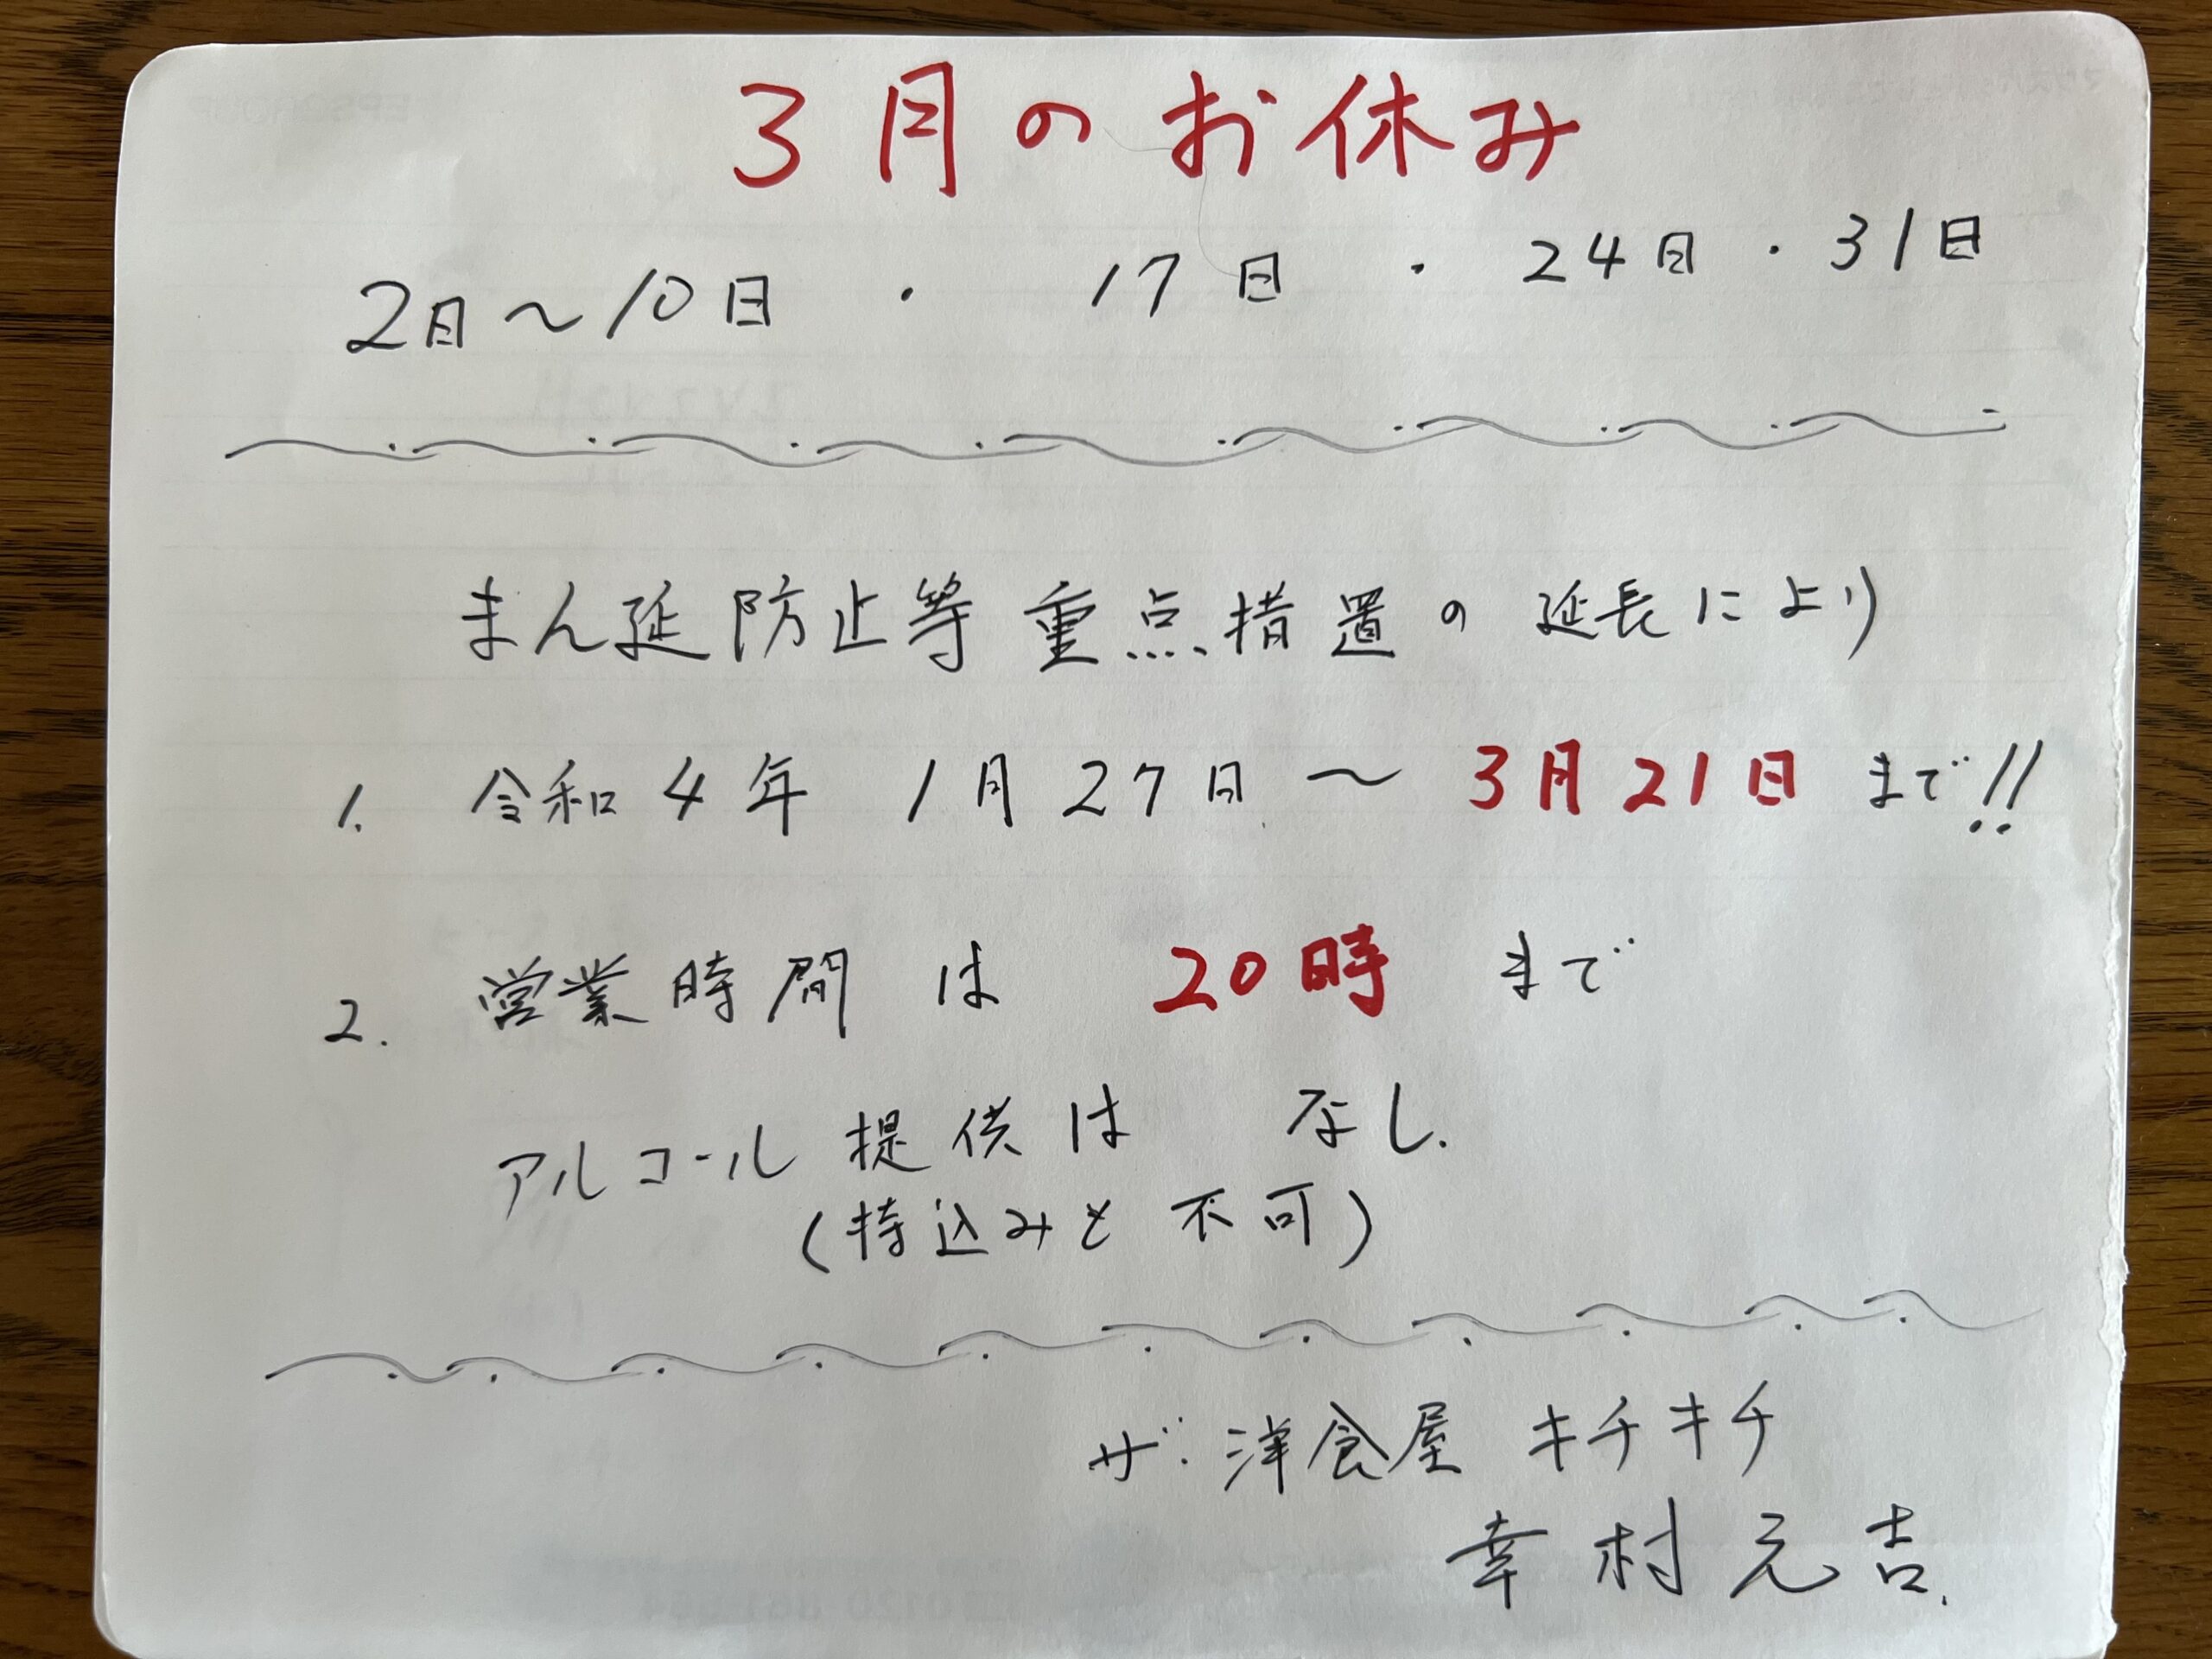 3月のお休み
2日〜10日・17日・24日・31日
まん延防止等重点措置の延長により
1. 令和4年 1月27日〜3月21日まで!!
2. 営業時間は 20時まで
アルコール提供は なし.
(持込みも不可)
ザ・洋食屋 キチキチ
幸村元吉.